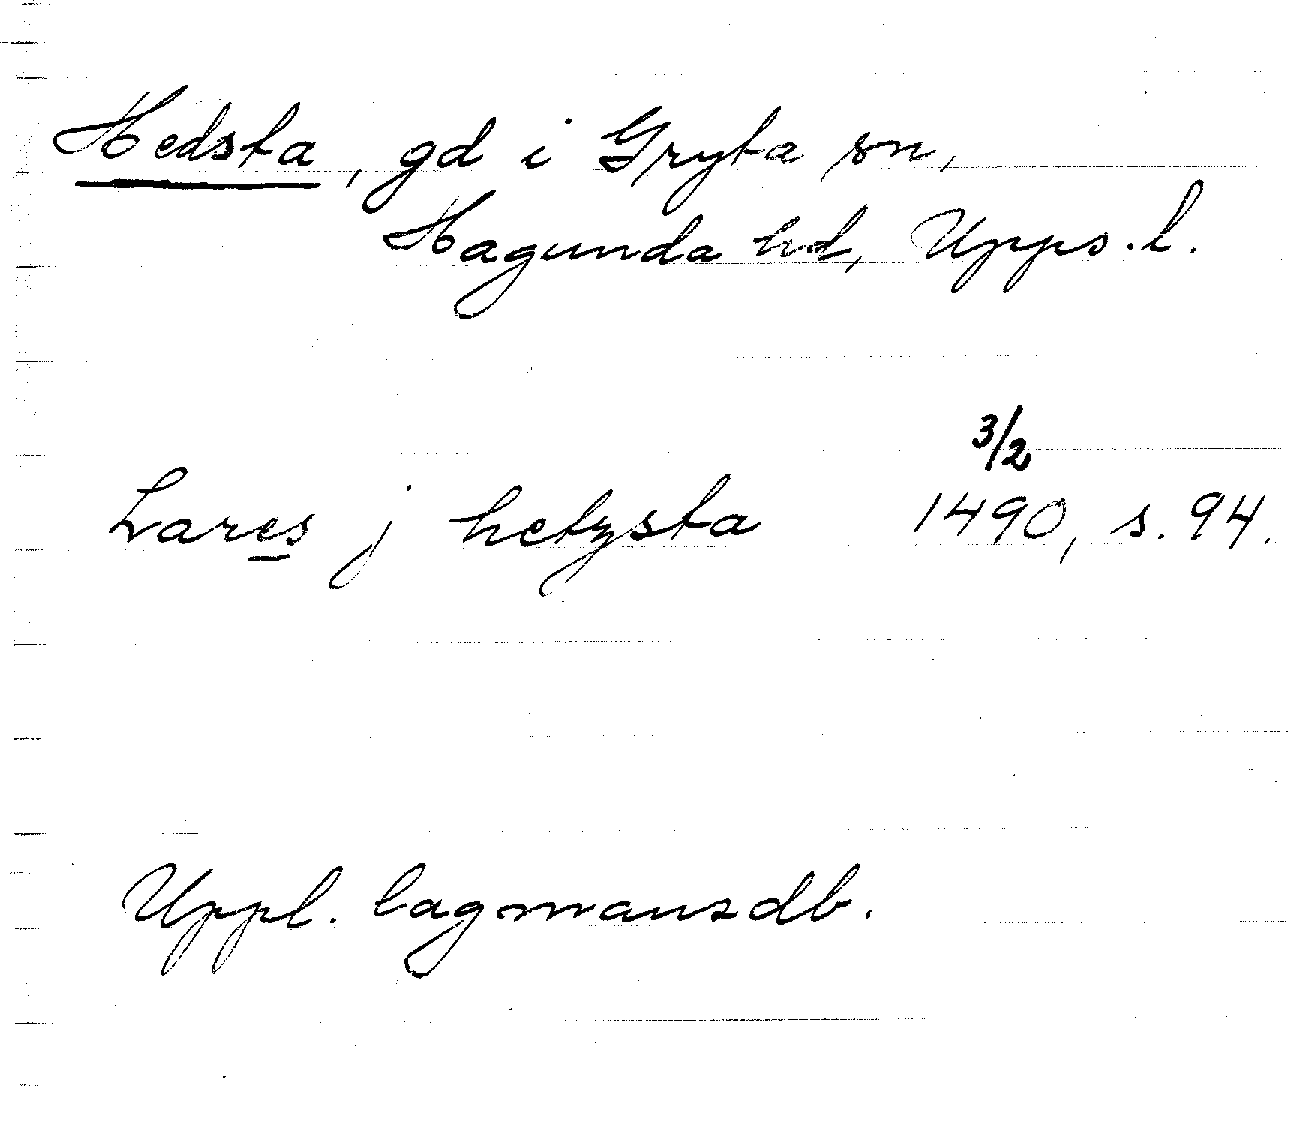 Hedsta, gd i Gryta sn,
Hagunda hd, Upps. l.
3/2
Lares j hetzsta 1490, s. 94.
Uppl. lagmansdb.